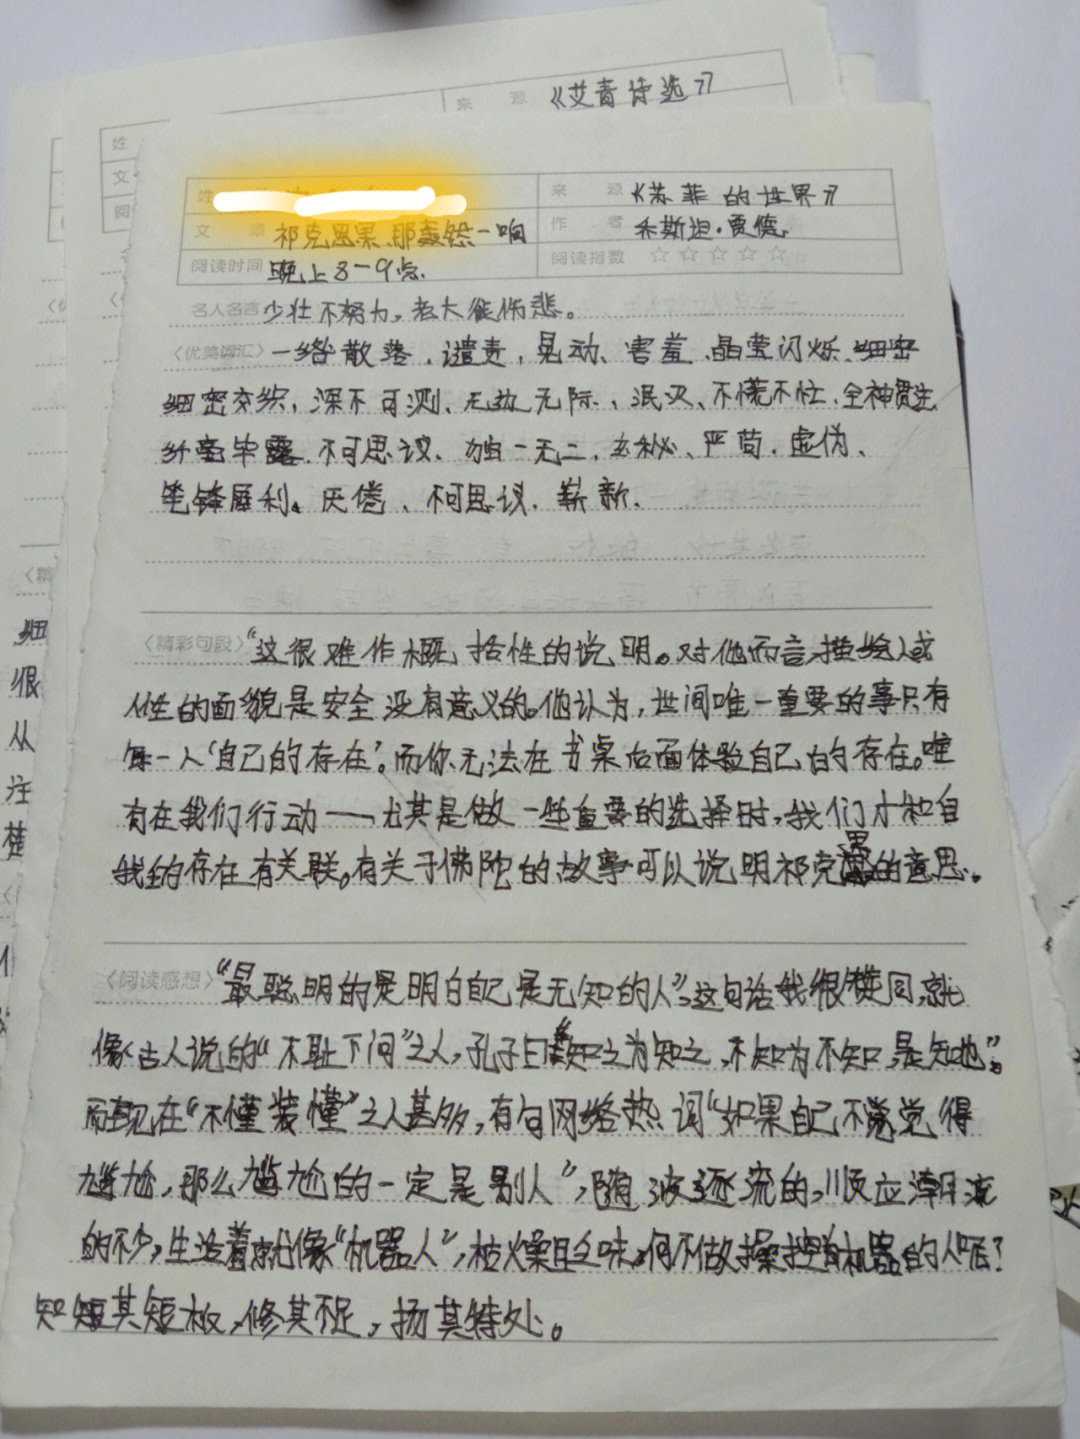 来 源 《艾青诗选》
姓
文
阅
姓 来 源 《苏菲的世界》
文 章 祁克果、那轰然一响 作 者 乔斯坦·贾德
阅读时间 晚上8-9点. 阅读指数 ☆☆☆☆☆
名人名言 少壮不努力，老大徒伤悲。
〈优美词汇〉一络散落、谴责，晃动、害羞、晶莹闪烁、细密
细密交织，深不可测、无边无际、泯灭、不慌不忙、全神贯注
纤毫毕露、不可思议、独一无二、玄秘、严苛、虚伪、
笔锋犀利、厌倦、不可思议、崭新.
〈精彩句段〉“这很难作概括性的说明。对他而言，描绘人或
人性的面貌是安全没有意义的。他认为，世间唯一重要的事只有
每一人‘自己的存在’。而你无法在书桌后面体验自己的存在。唯
有在我们行动——尤其是做一些重要的选择时，我们才和自
我的存在有关联。有关于佛陀的故事可以说明祁克果的意思。
〈阅读感想〉“最聪明的是明白自己是无知的人”，这句话我很赞同，就
像古人说的“不耻下问”之人，孔子曰“知之为知之，不知为不知，是知也”。
而现在“不懂装懂”之人甚多，有句网络热词“如果自己不觉得
尴尬，那么尴尬的一定是别人”，随波逐流的，顺应潮流
的不少，生活着就像“机器人”，枯燥且乏味，何不做操控机器的人呢？
知其短板，修其不足，扬其特处。
〈精
细
很
从
注
楚